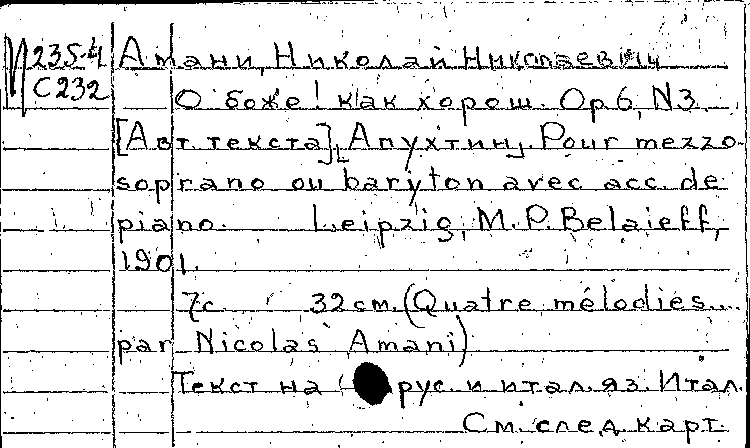 И 235-4 Амани, Николай Николаевич
С 232
О боже! как хорош. Op. 6, N3.
[Авт. текста], Апухтин. Pour mezzo-
soprano ou baryton avec acc. de
piano. Leipzig, M. P. Belaieff,
1901.
7с. 32 см. (Quatre mélodies...
par Nicolas Amani)
Текст на рус. и итал. яз. Итал.
См. след. карт.